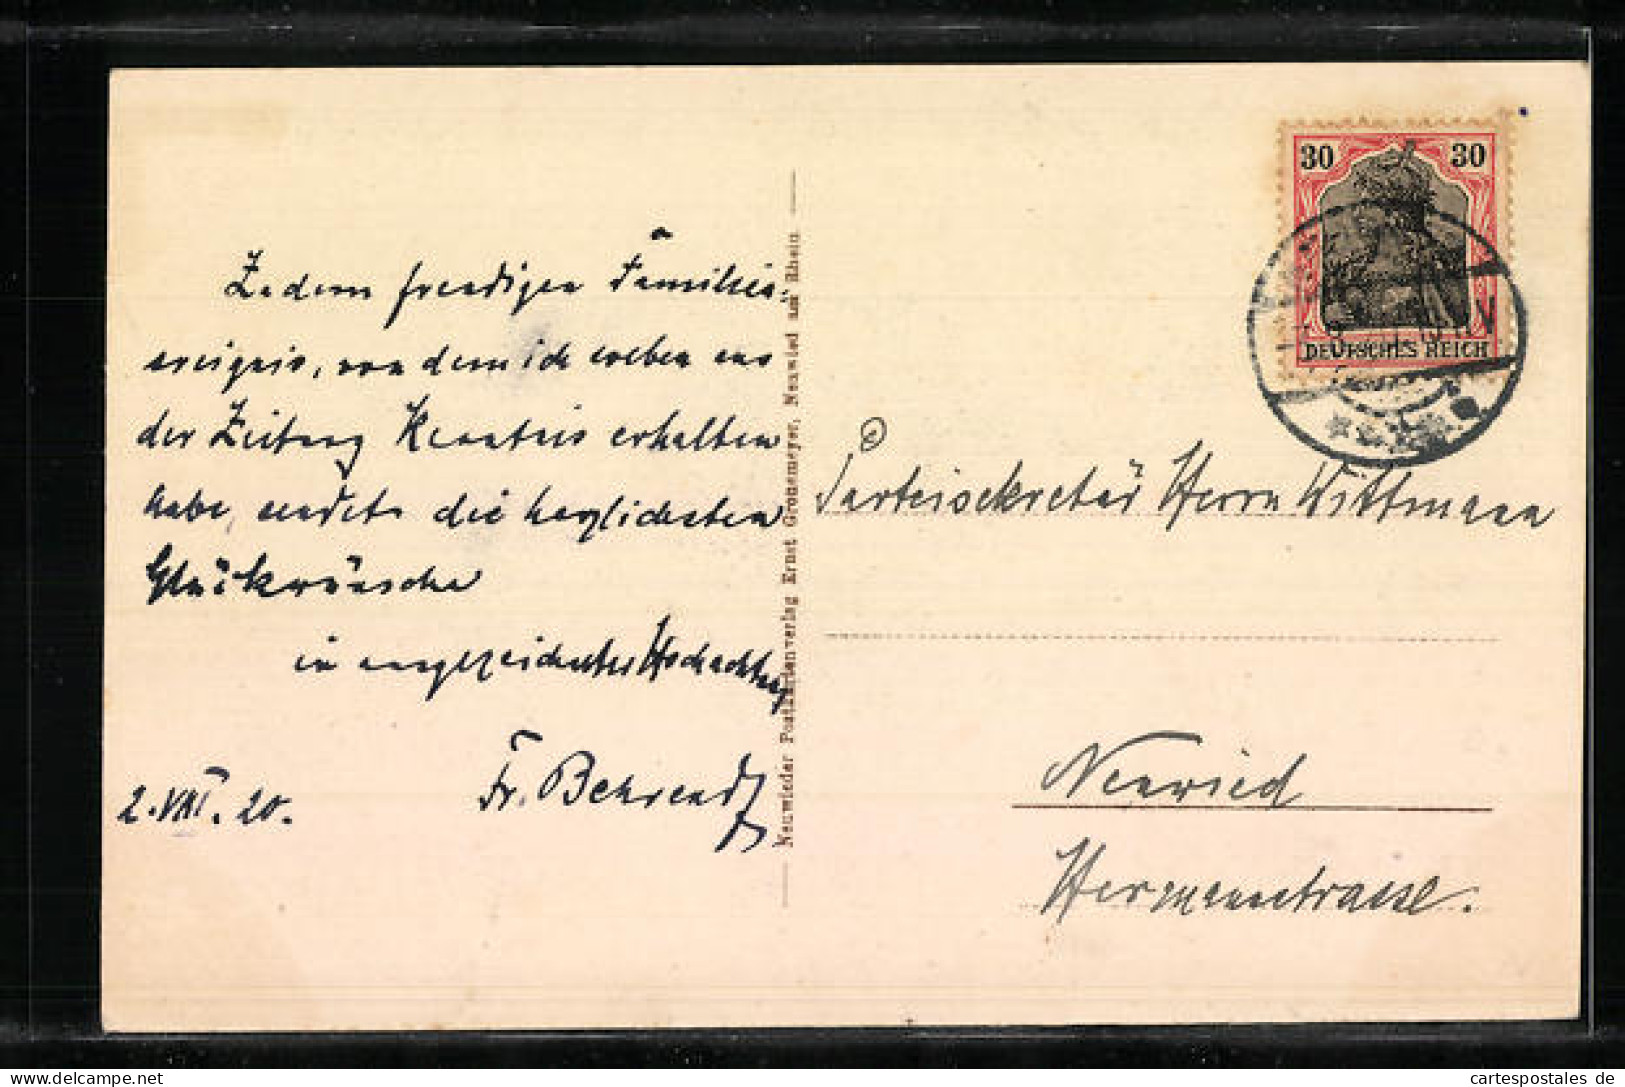 Zu dem freudigen Familien=
ereignis, von dem ich soeben aus
der Zeitung Kenntnis erhalten
habe, sendet die herzlichsten
Glückwünsche
in ausgezeichneter Hochachtung
Fr. Behrendt
2.VIII.20.
Neuwieder Postkartenverlag Ernst Gronemeyer, Neuwied am Rhein
30 30
DEUTSCHES REICH
Parteisekretär Herrn Wittmann
Neuwied
Hermannstrasse.
cartespostales de